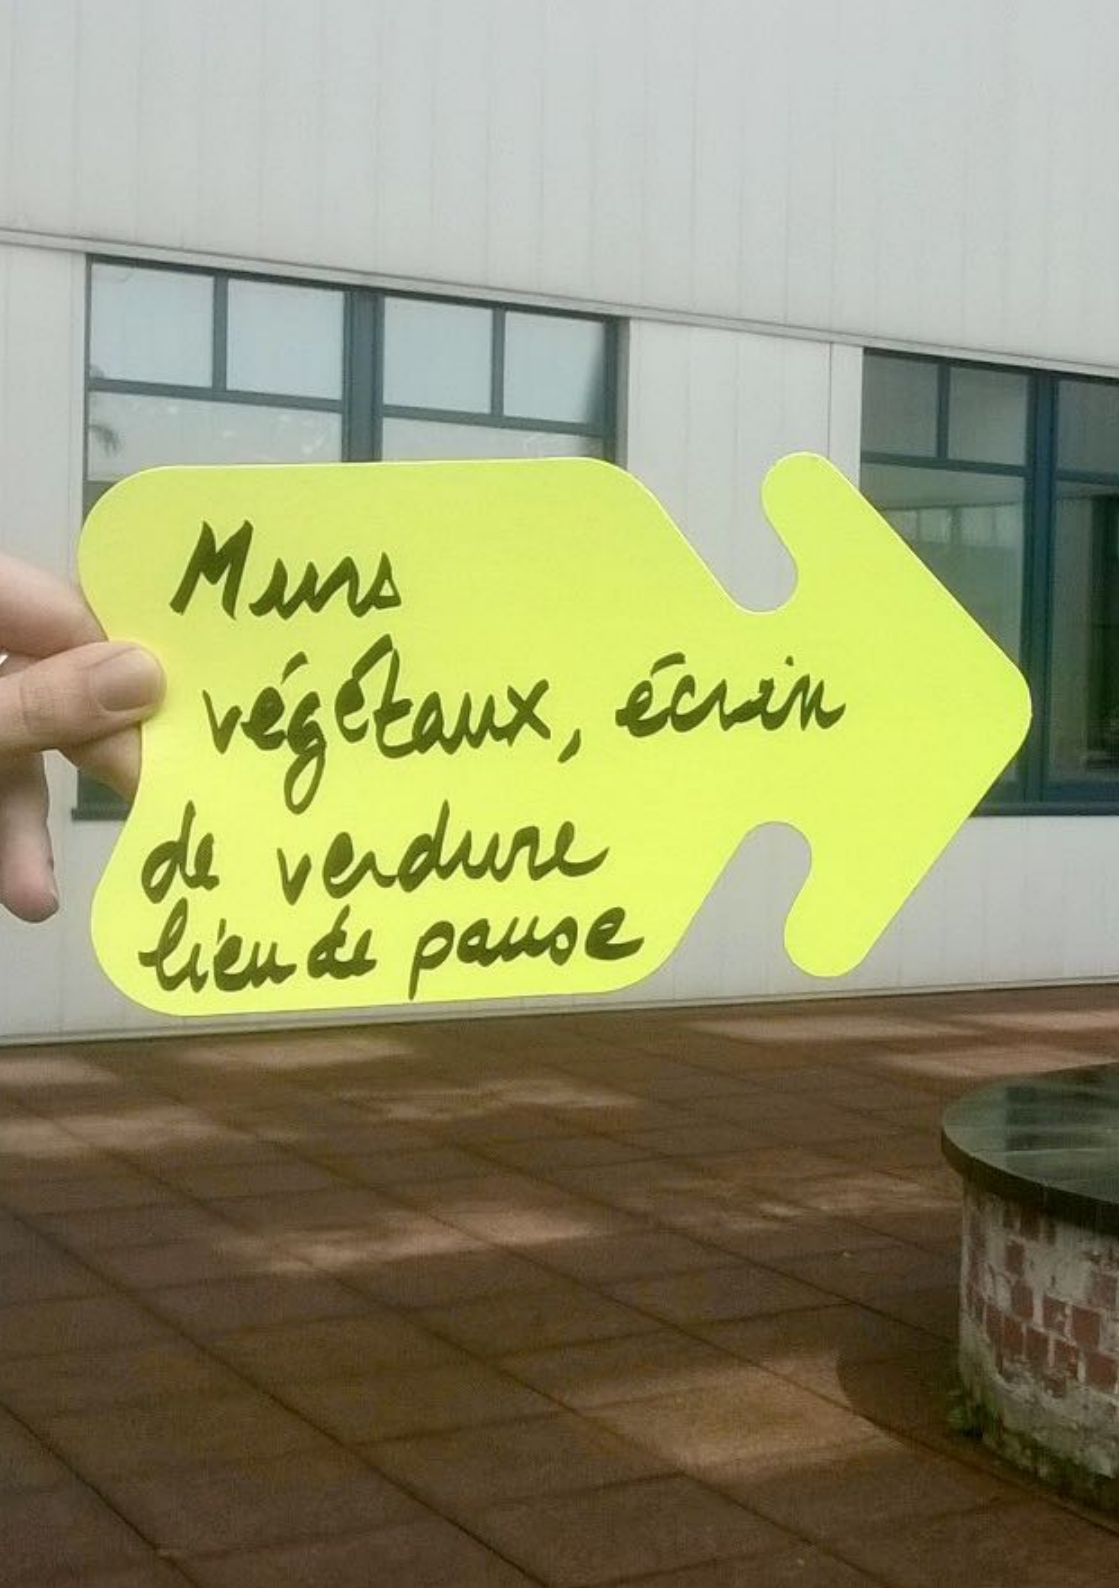 Murs
végétaux, écrin
de verdure
lieu de pause